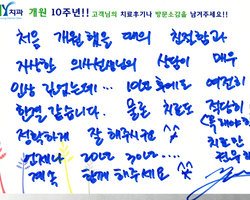 MY치과 개원 10주년!! 고객님의 치료후기나 방문소감을 남겨주세요!!
처음 개원했을 때의 친절함과
자상한 의사선생님의 상담이 매우
인상 깊었는데... 10년 후에도 여전히
한결 같습니다. 물론 치료도 적당히
정확하게 잘 해주시구 (특해야할
치료만
언제나 20년 30년.... 권유해
계속 함께 해주세요